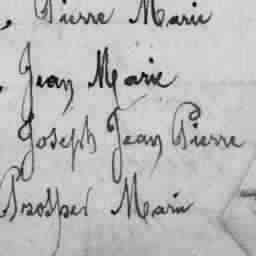 , Pierre Marie
, Jean Marie
Joseph Jean Pierre
Prosper Marie